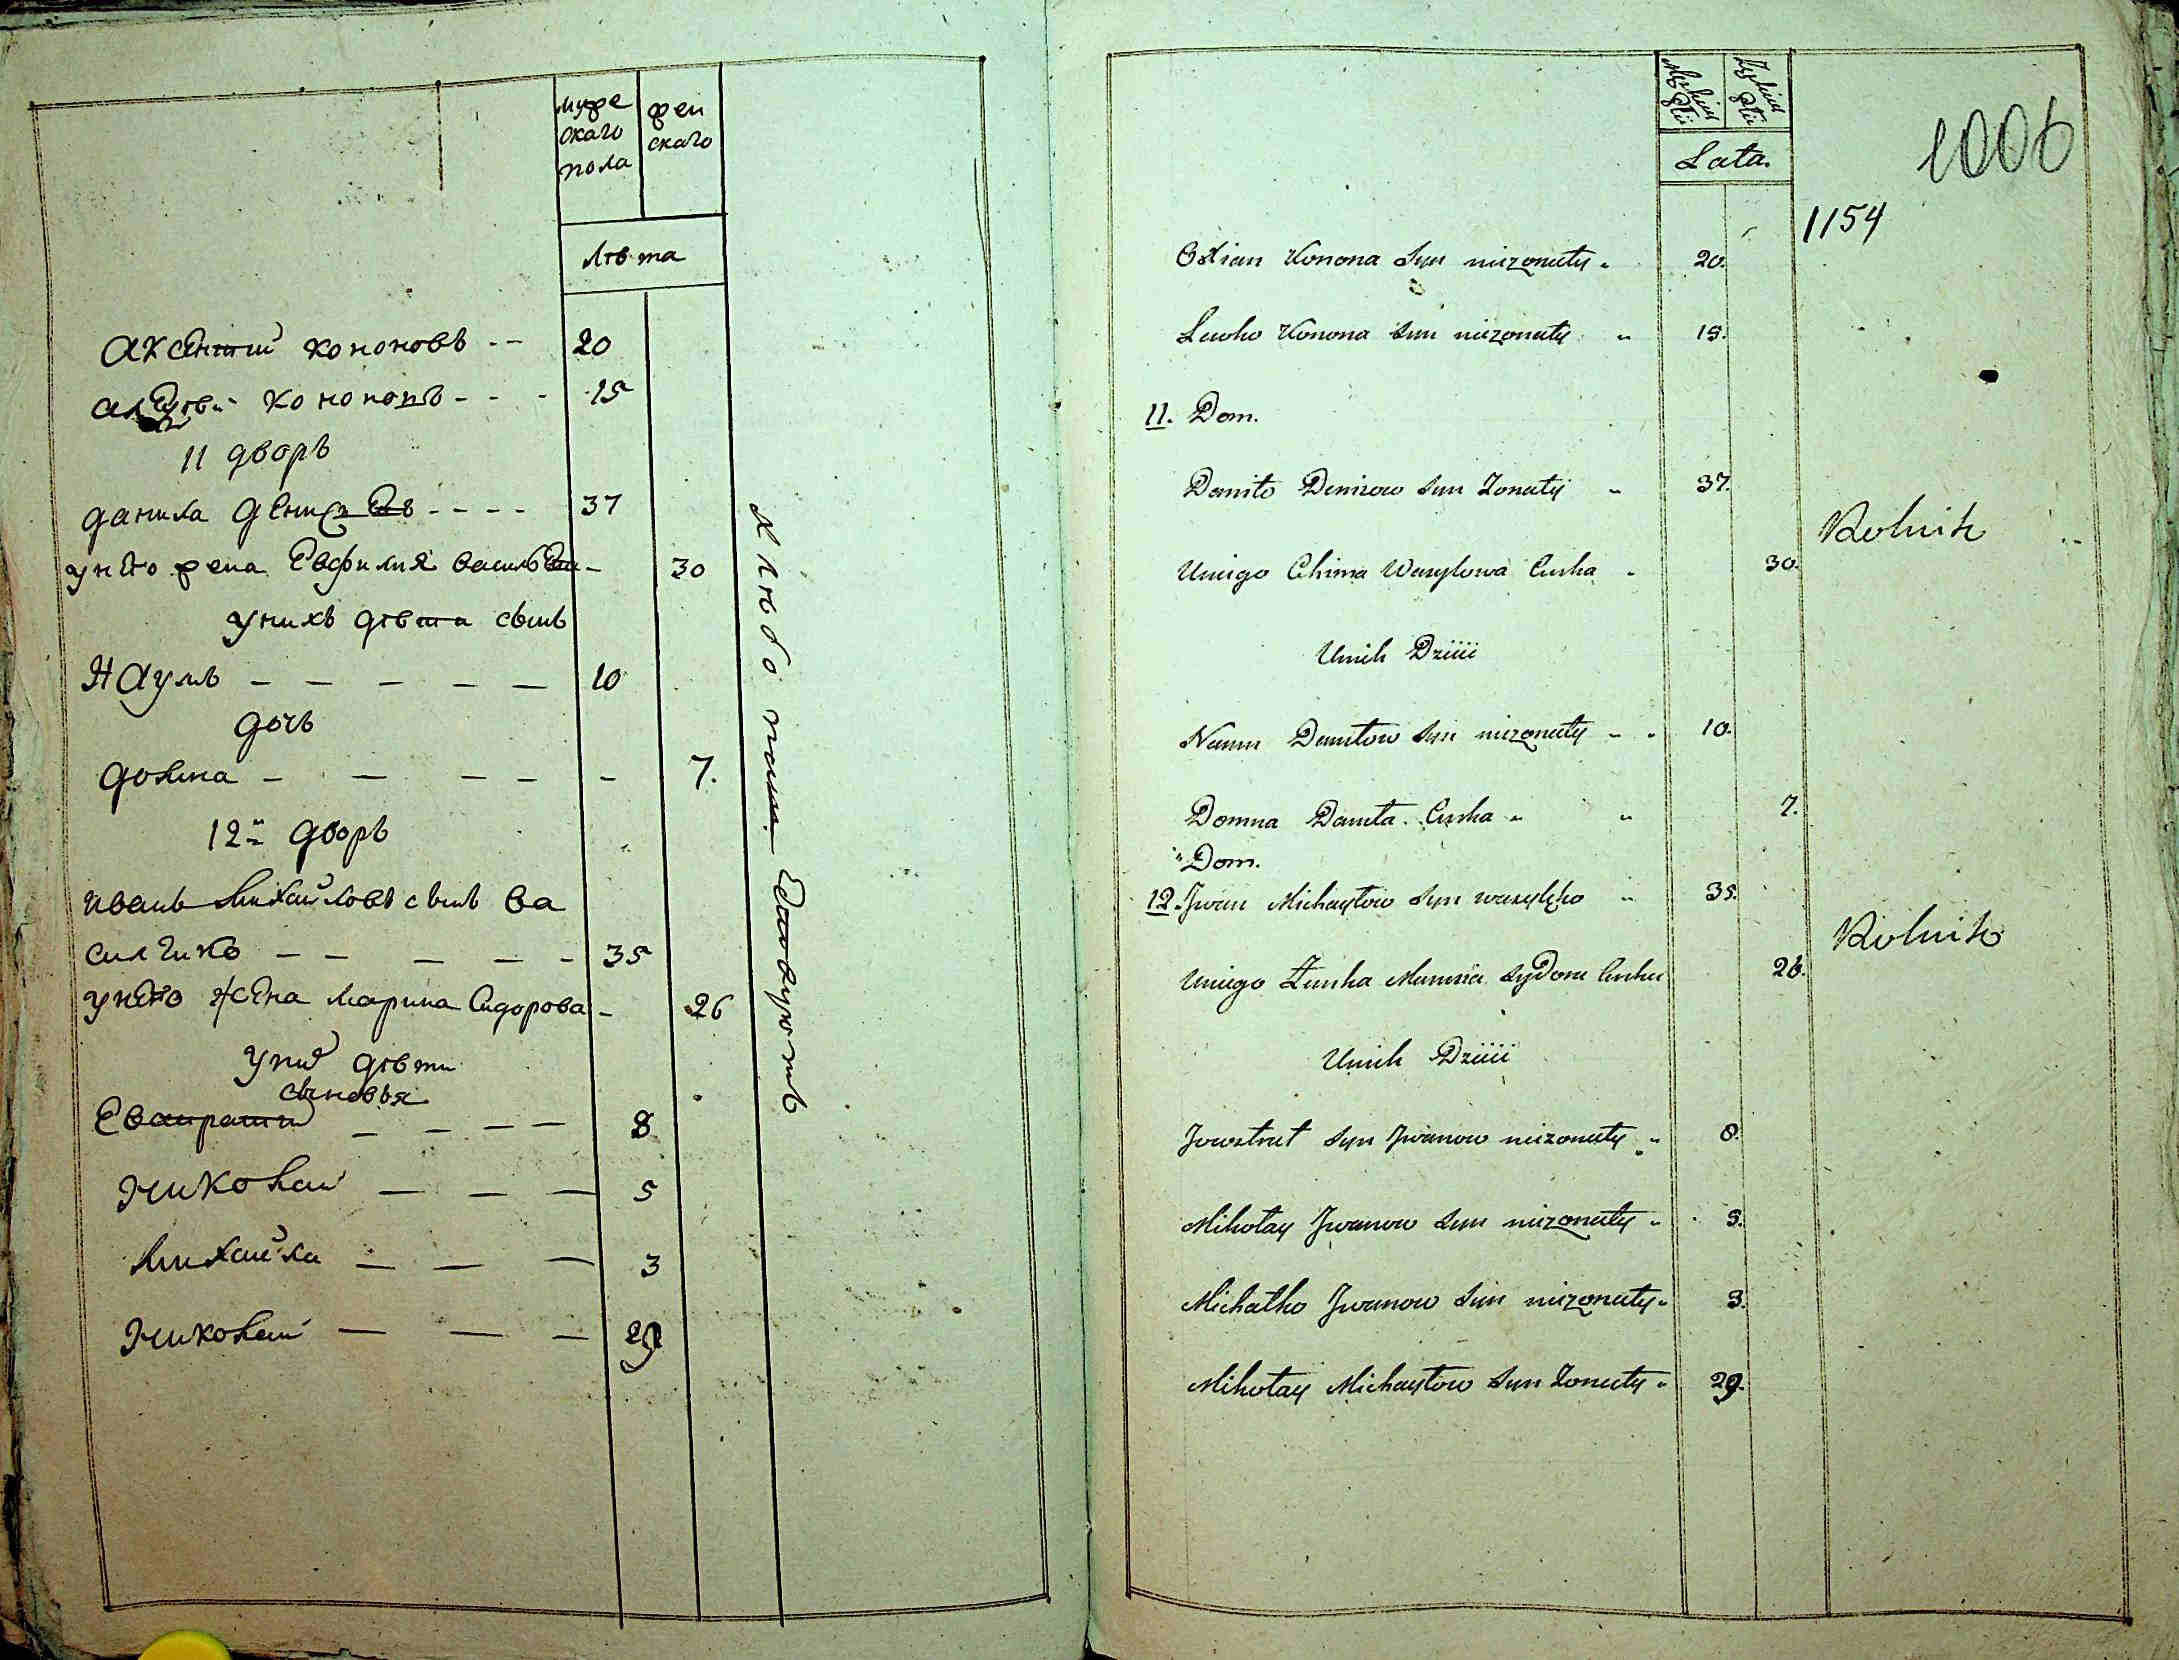 муже
скаго
пола
жен
скаго
лѣта
Аксентий кононовъ 20
алексѣй кононовъ 15
11 дворъ
данила денисовъ 37
унего жена Евфимия василева 30
унихъ дѣти сынъ
Наумъ 10
дочь
домна 7.
12й дворъ
иванъ Михайловъ сынъ ва
силчико 35
унего жена марина Сидорова 26
уних дѣти
сыновья
Евстратий 8
Николай 5
Михайла 3
Николай 29
хлѣбо пашецъ
Męzkiei Płci
Zęnskiei Płci
Lata.
1006
1154
Konona Syn niezonaty 20.
Konona Syn niezonaty 15.
11. Dom.
Daniło Denisow Syn Zonaty 37.
Rolnik
Uniego Wasylowa Curka 30.
Unich Dzieii
Naum Daniłow Syn niezonaty 10.
Domna Daniła Curka 7.
Dom.
12. Jwan Michayłow Syn 35.
Rolnik
Uniego Żunka Sydora Curka 26.
Unich Dzieii
Jewstrat Syn Jwanow niezonaty 8.
Mikołay Jwanow Syn niezonaty 5.
Michałko Jwanow Syn niezonaty 3.
Mikołay Michayłow Syn Zonaty 29.